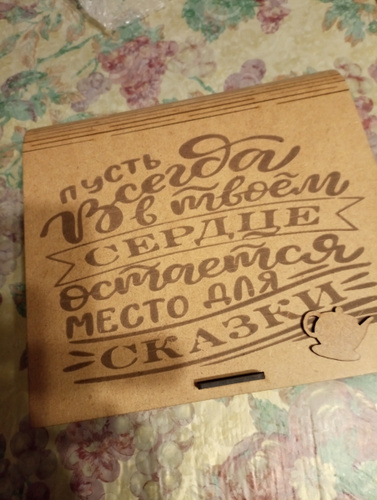 пусть
Всегда
в твоём
СЕРДЦЕ
остается
МЕСТО ДЛЯ
СКАЗКИ